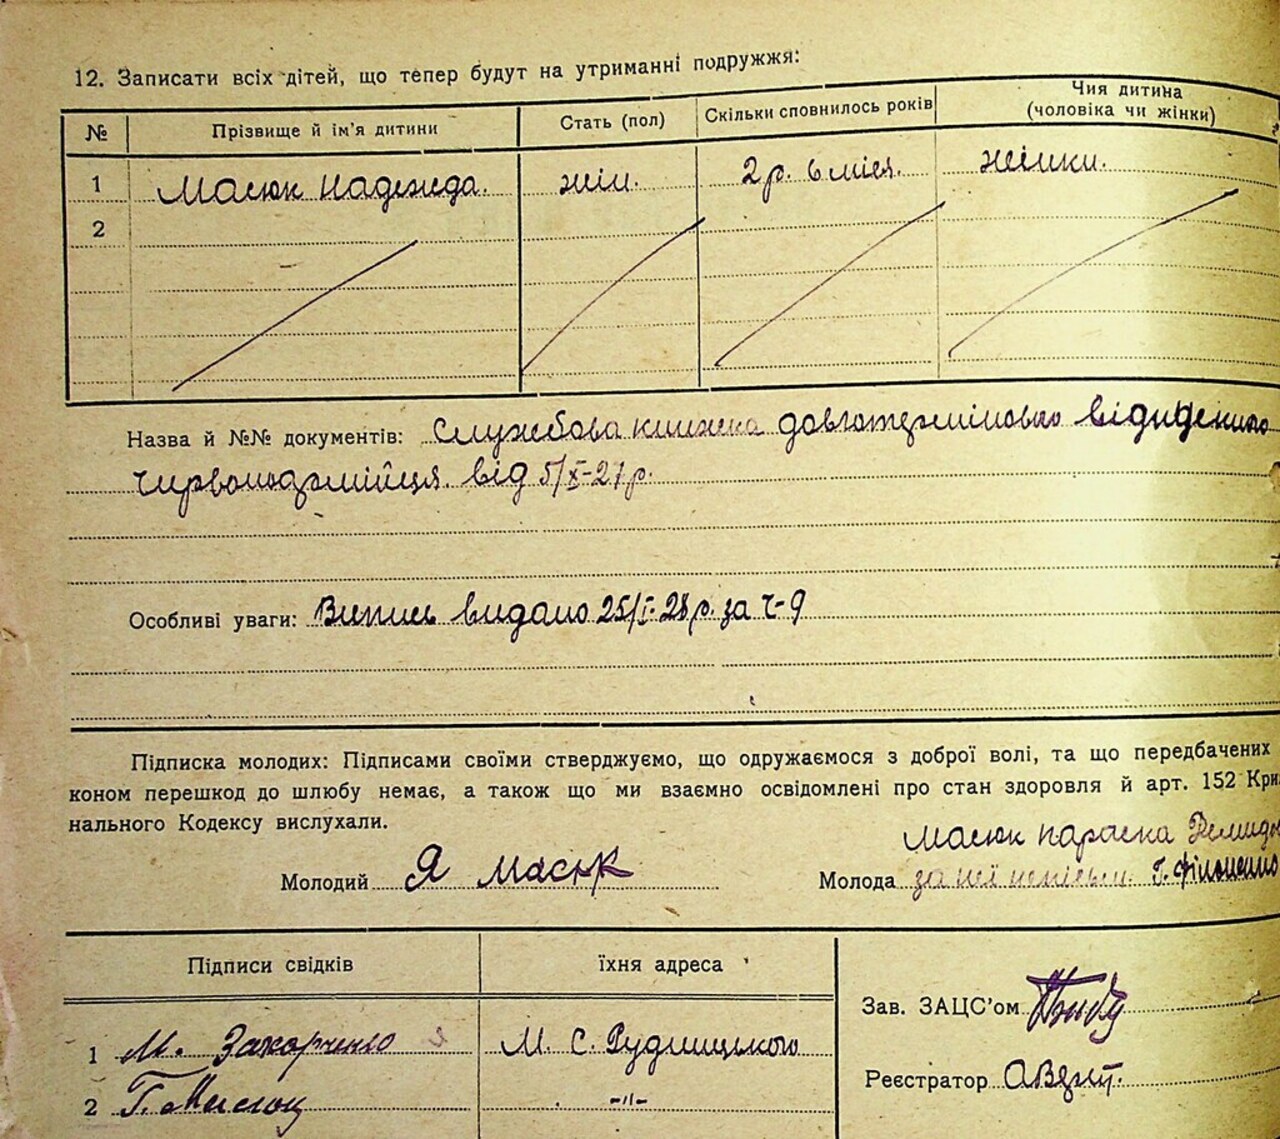 12. Записати всіх дітей, що тепер будут на утриманні подружжя:
№ Прізвище й ім'я дитини Стать (пол) Скільки сповнилось років Чия дитина (чоловіка чи жінки)
1 Масюк Надежда. жін. 2 р. 6 міся. жінки.
2
Назва й №№ документів: Службова книжка довготермінового
червоноармійця від 5/X-27 р.
Особливі уваги: Випись видано 25/I-28 р. за ч-9
Підписка молодих: Підписами своїми стверджуємо, що одружаємося з доброї волі, та що передбачених
коном перешкод до шлюбу немає, а також що ми взаємно освідомлені про стан здоров'я й арт. 152 Кри
нального Кодексу вислухали.
Масюк Параска
Молодий Я Масюк Молода за неї Г. Філоненко
Підписи свідків їхня адреса
Зав. ЗАЦС'ом
1 М. Захорченко М. С. Рудницького
Реєстратор
2 Г. Масюк -"-